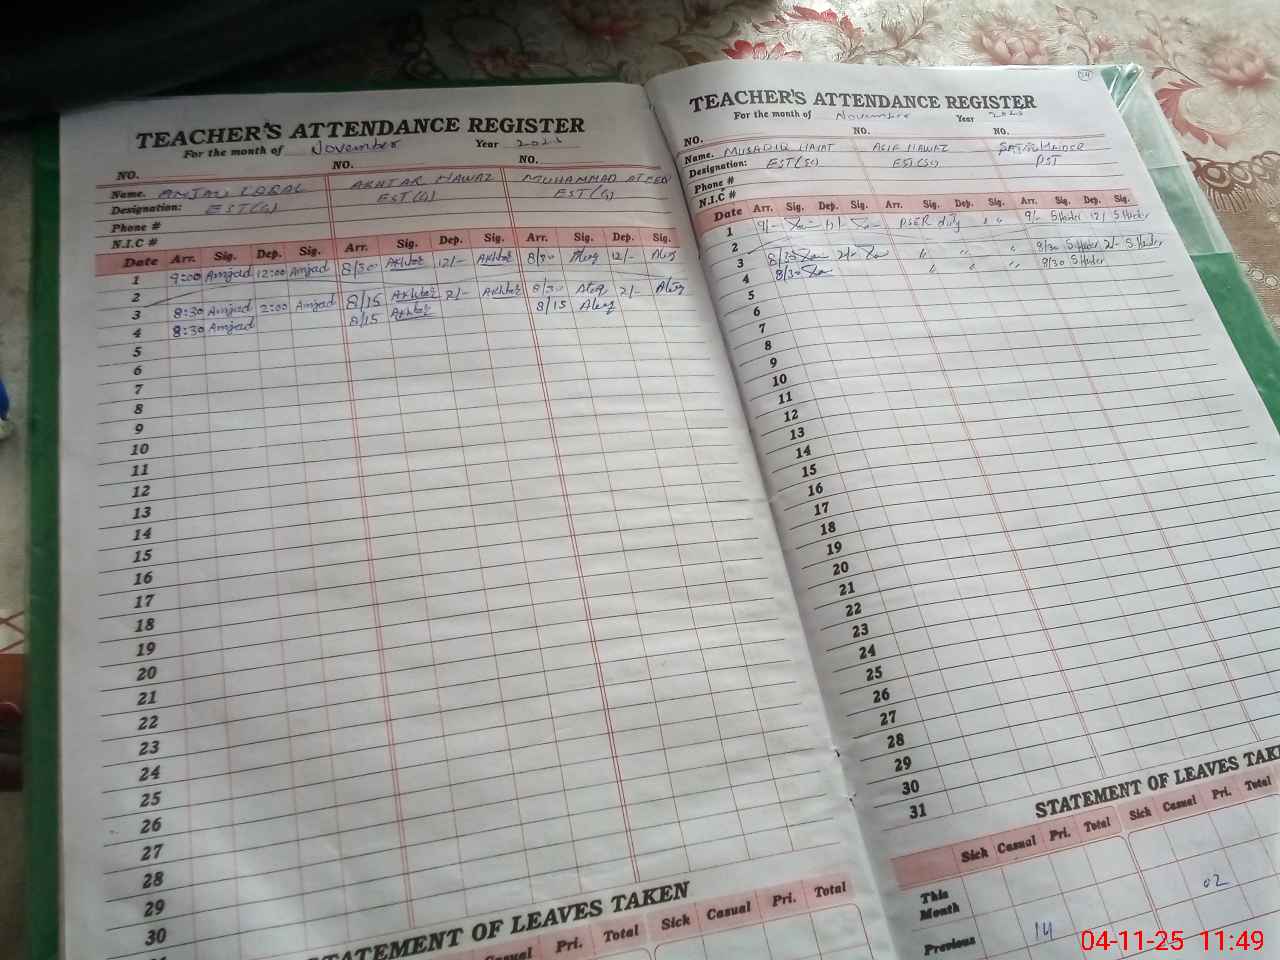 TEACHER'S ATTENDANCE REGISTER
For the month of November Year 2025
NO. NO. NO.
Name. AMJAD IQBAL AKHTAR NAWAZ MUHAMMAD ATEEQ
Designation: EST(G) EST(G) EST(G)
Phone #
N.I.C #
Date Arr. Sig. Dep. Sig. Arr. Sig. Dep. Sig. Arr. Sig. Dep. Sig.
1 9:00 Amjad 12:00 Amjad 8/30 Akhtar 12/- Akhtar 8/30 Ateeq 12/- Ateeq
2
3 8:30 Amjad 2:00 Amjad 8/15 Akhtar 2/- Akhtar 8/30 Ateeq 2/- Ateeq
4 8:30 Amjad 8/15 Akhtar 8/15 Ateeq
5
6
7
8
9
10
11
12
13
14
15
16
17
18
19
20
21
22
23
24
25
26
27
28
29
30
STATEMENT OF LEAVES TAKEN
Casual Pri. Total Sick Casual Pri. Total
24
TEACHER'S ATTENDANCE REGISTER
For the month of November Year 2025
NO. NO. NO.
Name. MUSADIQ HAYAT ASIF NAWAZ HAIDER
Designation: EST(SC) EST(SC) PST
Phone #
N.I.C #
Date Arr. Sig. Dep. Sig. Arr. Sig. Dep. Sig. Arr. Sig. Dep. Sig.
1 9/- 12/- PSER duty " " 9/- S Haider 12/- S Haider
2
3 8/30 2/- " " " 8/30 S Haider 2/- S Haider
4 8/30 " " " 8/30 S Haider
5
6
7
8
9
10
11
12
13
14
15
16
17
18
19
20
21
22
23
24
25
26
27
28
29
30
31
STATEMENT OF LEAVES
Sick Casual Pri. Total Sick Casual Pri. Total
This Month 02
Previous 14
04-11-25 11:49